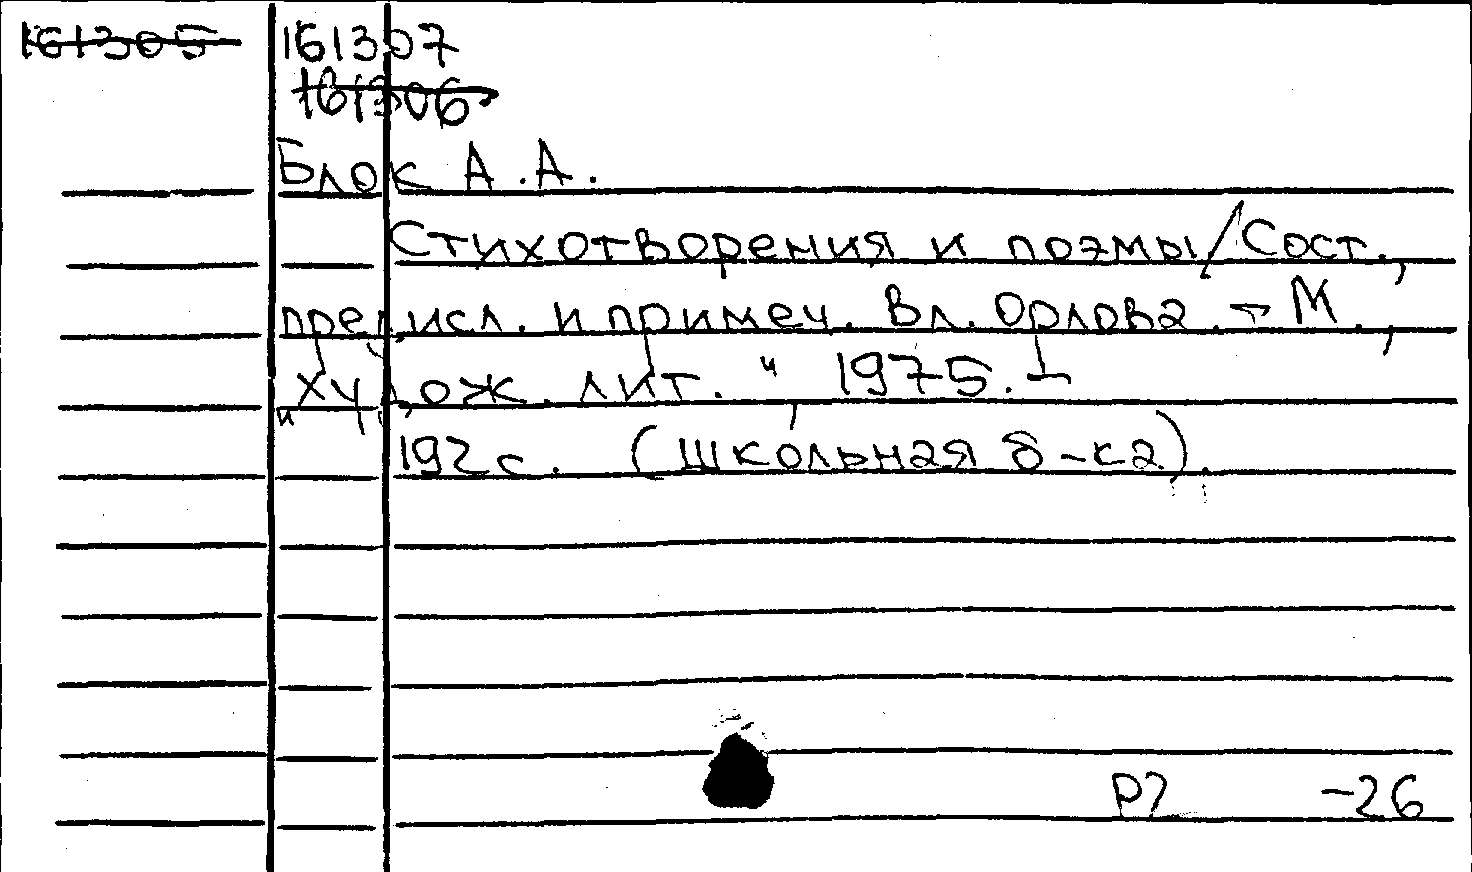 161305 161307
161306
Блок А.А.
Стихотворения и поэмы/Сост.,
предисл. и примеч. Вл. Орлова. - М.,
"Худож. лит.", 1975. -
192 с. (Школьная б-ка).
Р2 -26